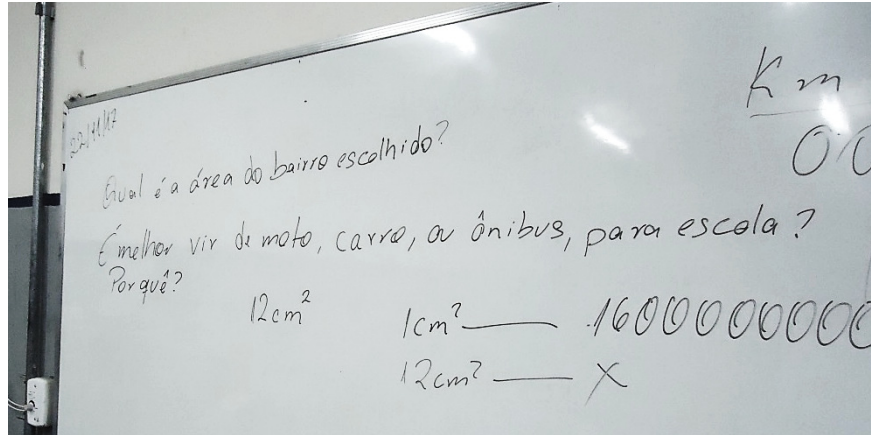 22/11/17
Km
00
Qual é a área do bairro escolhido?
É melhor vir de moto, carro, ou ônibus, para escola?
Por quê?
12cm²
1cm² 1600000000
12cm² x